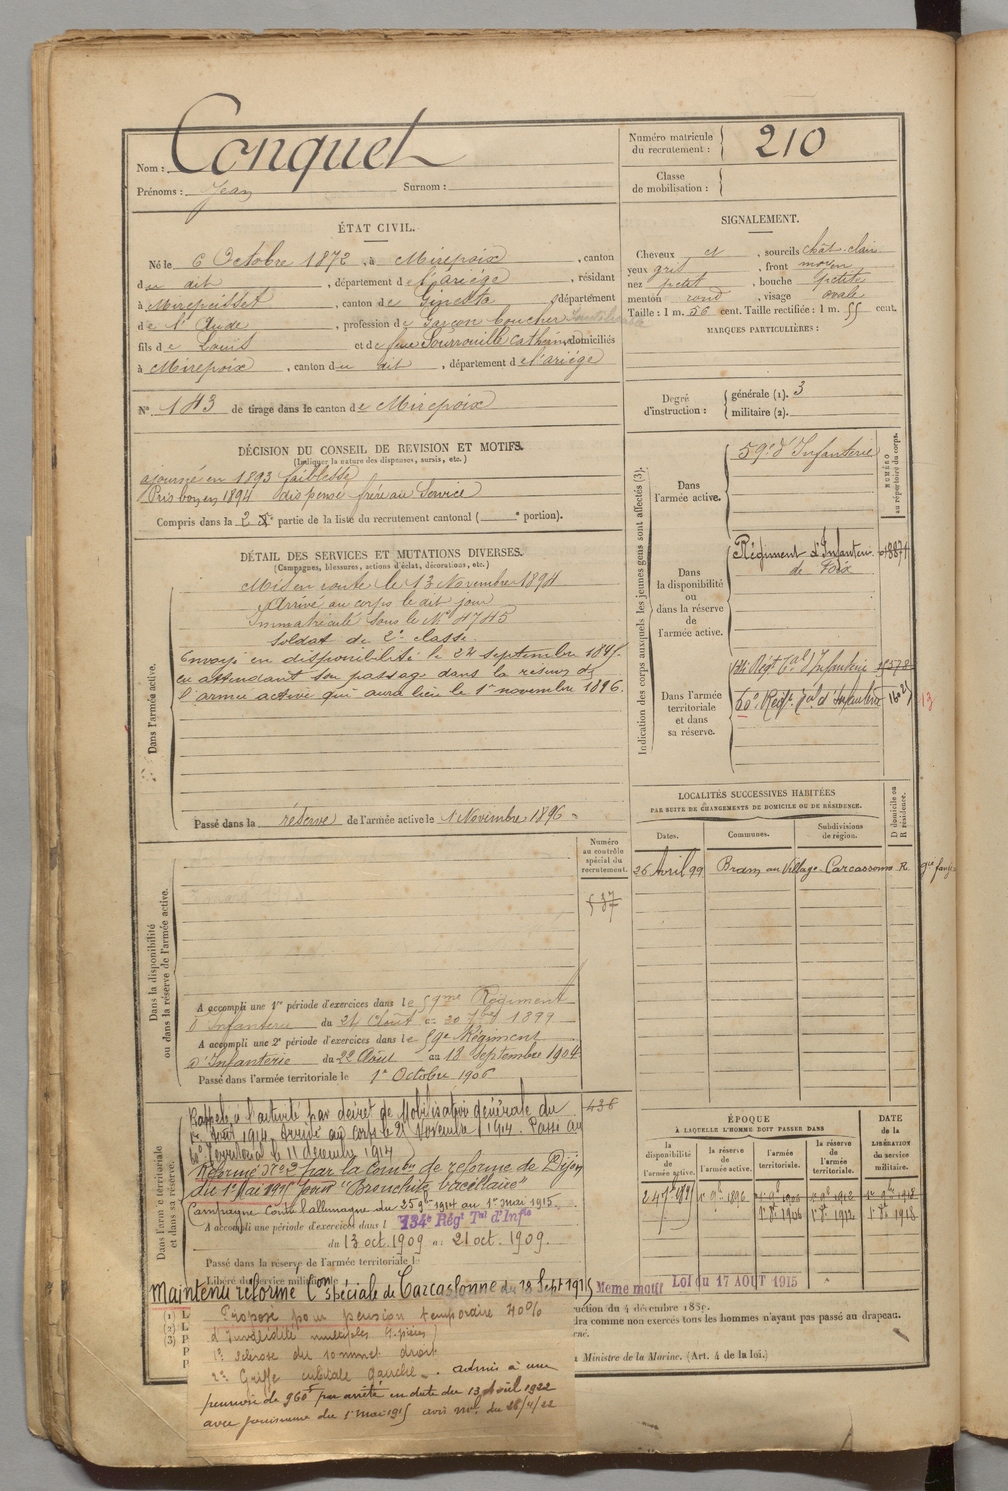 Nom : Conquet
Prénoms : Jean Surnom :
Numéro matricule du recrutement : 210
Classe de mobilisation :
ÉTAT CIVIL.
Né le 6 Octobre 1872, à Mirepoix, canton
du dit, département de l'Ariège, résidant
à Mirepeisset, canton de Ginesta, département
de l'Aude, profession de Garçon boucher
fils de Louis et de feue Sourrouille Catherine, domiciliés
à Mirepoix, canton du dit, département de l'ariège
N° 143 de tirage dans le canton de Mirepoix
SIGNALEMENT.
Cheveux et, sourcils chât. clair
yeux gris, front moyen
nez petit, bouche petite
menton rond, visage ovale
Taille : 1 m. 56 cent. Taille rectifiée : 1 m. 55 cent.
MARQUES PARTICULIÈRES :
Degré d'instruction : générale (1). 3
militaire (2).
DÉCISION DU CONSEIL DE REVISION ET MOTIFS.
(Indiquer la nature des dispenses, sursis, etc.)
ajourné en 1893 faiblesse
Pris bon en 1894 dispensé frère au Service
Compris dans la 2e partie de la liste du recrutement cantonal ( e portion).
DÉTAIL DES SERVICES ET MUTATIONS DIVERSES.
(Campagnes, blessures, actions d'éclat, décorations, etc.)
Dans l'armée active.
Mis en route le 13 Novembre 1894
Arrivé au corps le dit jour
Immatriculé sous le N° 4745
Soldat de 2e classe.
Envoyé en disponibilité le 24 septembre 1895
en attendant son passage dans la réserve de
l'armée active qui aura lieu le 1er novembre 1896.
Passé dans la réserve de l'armée active le 1 Novembre 1896
Indication des corps auxquels les jeunes gens sont affectés (3).
NUMÉRO au répertoire du corps.
Dans l'armée active.
59e d'Infanterie
Dans la disponibilité ou dans la réserve de l'armée active.
Régiment d'Infanterie
de Foix
Dans l'armée territoriale et dans sa réserve.
134 Régt Tal d'Infanterie
60e Régt tal d'Infanterie
13
LOCALITÉS SUCCESSIVES HABITÉES
PAR SUITE DE CHANGEMENTS DE DOMICILE OU DE RÉSIDENCE.
Dates. Communes. Subdivisions de région. D domicile ou R résidence.
26 Avril 99 Bram au Village Carcassonne R
Numéro au contrôle spécial du recrutement.
Dans la disponibilité ou dans la réserve de l'armée active.
A accompli une 1re période d'exercices dans le 59me Régiment
d'Infanterie du 24 Août au 20 7bre 1899
A accompli une 2e période d'exercices dans le 59e Régiment
d'Infanterie du 22 Août au 18 Septembre 1904
Passé dans l'armée territoriale le 1er Octobre 1906
436
Dans l'armée territoriale et dans sa réserve.
Rappelé à l'activité par décret de Mobilisation générale du
1er Août 1914. Arrivé au corps le 21 Novembre 1914. Passé au
60e Territorial le 11 décembre 1914
Réformé N° 2 par la Comon de réforme de Dijon
du 1er Mai 1915 pour "Bronchite bacillaire"
Campagne contre l'allemagne du 25 9bre 1914 au 1er mai 1915.
A accompli une période d'exercices dans l 134e Régt Tal d'Infie
du 13 oct. 1909 au 21 oct. 1909.
Passé dans la réserve de l'armée territoriale l
Libéré du service militaire
Maintenu réformé Con spéciale de Carcassonne du 18 Sept 1915 Meme motif LOI du 17 AOUT 1915
ÉPOQUE
À LAQUELLE L'HOMME DOIT PASSER DANS
la disponibilité de l'armée active. la réserve de l'armée active. l'armée territoriale. la réserve de l'armée territoriale.
DATE de la LIBÉRATION du service militaire.
24 7bre 1895 1er 9bre 1896 1er 9bre 1906 1er 9bre 1912 1er 9bre 1918
1er 8bre 1906 1er 8bre 1912 1er 8bre 1918
(1) L
(2) L
(3) P
P
P
Proposé pour pension temporaire 40%
d'invalidité multiples
1° Sclérose du sommet droit
2° Griffe cubitale gauche. admis à une
pension de 960f par arrêté en date du 13 Août 1922
avec jouissance du 1er mai 1915 avis mel du 28/4/22
ruction du 4 décembre 1889.
dra comme non exercés tous les hommes n'ayant pas passé au drapeau.
Ministre de la Marine. (Art. 4 de la loi.)